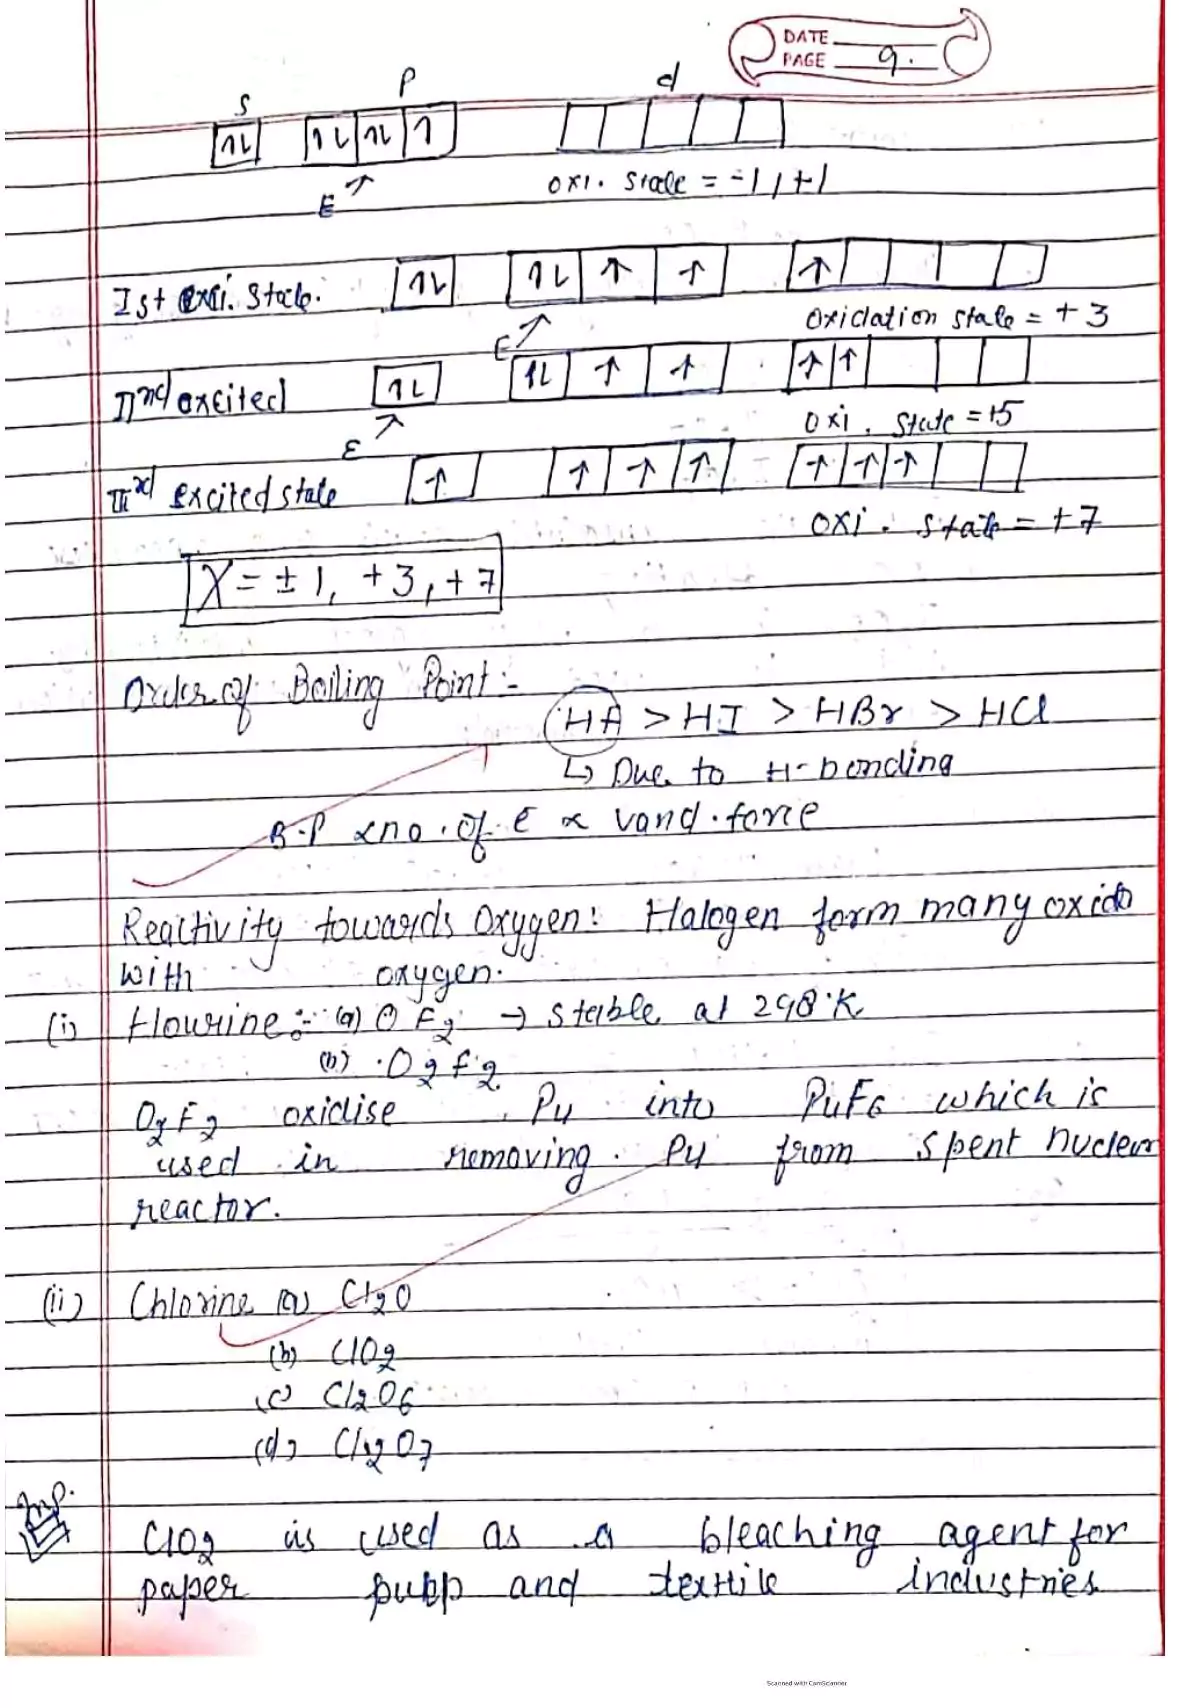 DATE
PAGE 9.
S P d
1L 1L 1L 1
E ↗ oxi. state = -1, +1
Ist exi. state. 1L 1L ↑ ↑ ↑
E ↗ Oxidation state = +3
IInd excited 1L 1L ↑ ↑ ↑ ↑
E ↗ oxi. state = +5
excited state ↑ ↑ ↑ ↑ ↑ ↑ ↑
oxi. state = +7
X = ± 1, +3, +7
Order of Boiling Point :-
> HI > HBr > HCl
↳ Due to H-bonding
B.P ∝ no. of E ∝ vand. force
Reactivity towards Oxygen: Halogen form many oxide
with oxygen.
(i) Flourine :- (a) O F2 → stable at 298 K
(b) O2F2
O2F2 oxidise Pu into PuF6 which is
used in removing Pu from spent nuclear
reactor.
(ii) Chlorine (a) Cl2O
(b) ClO2
(c) Cl2O6
(d) Cl2O7
Imp.
ClO2 is used as a bleaching agent for
paper pupp and textile industries
Scanned with CamScanner